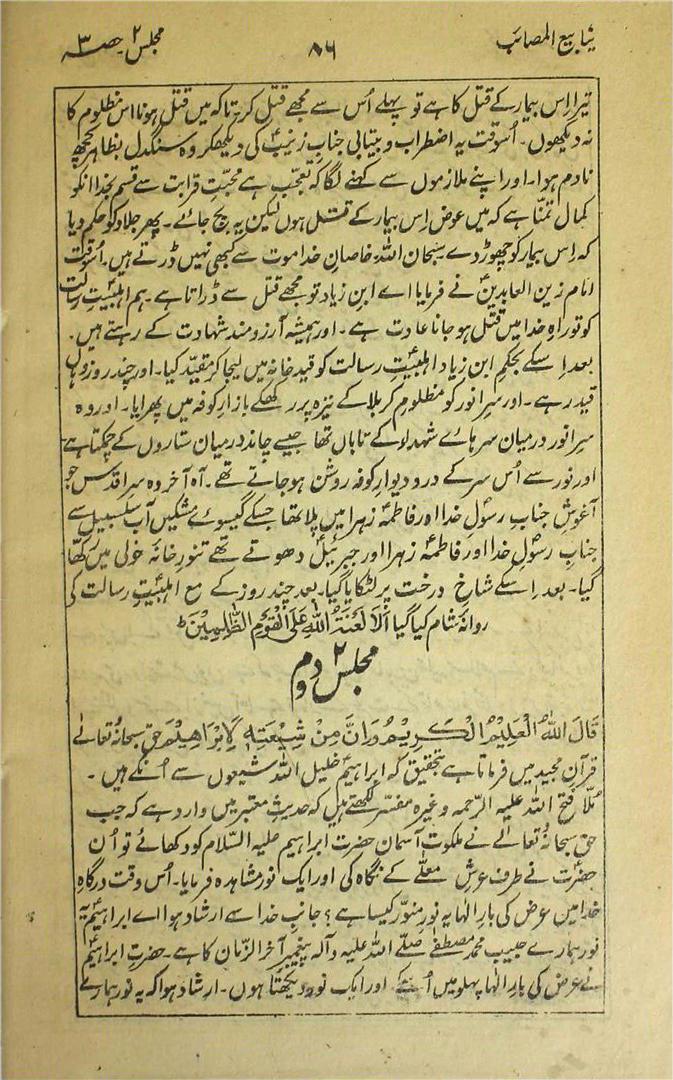 ینابیع المصائب ۸۶ مجلس ۲ حصہ ۳
تیرا اِس بیمار کے قتل کا ہے تو پہلے اُس سے مجھے قتل کر تاکہ میں قتل ہونا اس مظلوم کا
نہ دیکھوں۔ اُسوقت یہ اضطراب و بیتابی جنابِ زینبؑ کی دیکھکر وہ سنگدل بظاہر کچھ
نادم ہوا۔ اور اپنے ملازموں سے کہنے لگا کہ تعجب ہے محبّتِ قرابت سے قسم بخدا انکو
کمال تمنّا ہے کہ میں عوض اِس بیمار کے قتل ہوں لیکن یہ بچ جائے۔ پھر جلاد کو حکم دیا
کہ اِس بیمار کو چھوڑ دے سبحان اللہ خاصانِ خدا موت سے کبھی نہیں ڈرتے ہیں۔ اُسوقت
امام زین العابدینؑ نے فرمایا اے ابنِ زیاد تو مجھے قتل سے ڈراتا ہے۔ ہم اہلبیتِ رسالت
کو تو راہِ خدا میں قتل ہو جانا عادت ہے۔ اور ہمیشہ آرزومند شہادت کے رہتے ہیں۔
بعد اِسکے بحکمِ ابن زیاد اہلبیتِ رسالت کو قید خانہ میں لیجا کر مقیّد کیا۔ اور چند روز وہاں
قید رہے۔ اور سرِ انور کو مظلومِ کربلا کے نیزہ پر رکھکے بازارِ کوفہ میں پھرایا۔ اور وہ
سرِ انور درمیان سرہائے شہدا کے تاباں تھا جیسے چاند درمیان ستاروں کے چمکتا ہے
اور نور سے اُس سر کے در و دیوارِ کوفہ روشن ہو جاتے تھے۔ آہ آخر وہ سرِ اقدس جو
آغوشِ جناب رسولِ خدا اور فاطمۂ زہرا میں پلا تھا جسکے گیسوئے مشکیں آبِ سلسبیل سے
جنابِ رسولِ خدا اور فاطمۂ زہرا اور جبرئیلؑ دھوتے تھے تنورِ خانۂ خولی میں رکھا
گیا۔ بعد اِسکے شاخِ درخت پر لٹکایا گیا۔ بعد چند روز کے مع اہلبیتِ رسالت کے
روانۂ شام کیا گیا اَلَا لَعْنَةُ اللّٰهِ عَلَى الْقَوْمِ الظَّالِمِیْنَ
مجلس ۲ دوم
قَالَ اللّٰهُ الْعَلِیْمُ الْکَرِیْمُ وَاِنَّ مِنْ شِیْعَتِهٖ لَاِبْرَاهِیْمَ حق سبحانہٗ تعالےٰ
قرآنِ مجید میں فرماتا ہے بتحقیق کہ ابراہیمؑ خلیل اللہ شیعوں سے اُنکے ہیں۔
مُلّا فتح اللہ علیہ الرّحمہ وغیرہ مفسّر لکھتے ہیں کہ حدیثِ معتبر میں وارد ہے کہ جب
حق سبحانہٗ تعالےٰ نے ملکوتِ آسمان حضرت ابراہیم علیہ السّلام کو دکھائے تو اُن
حضرت نے طرف عرشِ معلّے کے نگاہ کی اور ایک نور مشاہدہ فرمایا۔ اُس وقت درگاہِ
خدا میں عرض کی بارِ الہا یہ نورِ منوّر کیسا ہے؟ جانبِ خدا سے ارشاد ہوا اے ابراہیمؑ یہ
نور ہمارے حبیب محمد مصطفےٰ صلّے اللہ علیہ و آلہ پیغمبرِ آخر الزّمان کا ہے۔ حضرت ابراہیمؑ
نے عرض کی بارِ الہا پہلو میں اُسکے اور ایک نور دیکھتا ہوں۔ ارشاد ہوا کہ یہ نور ہمارے